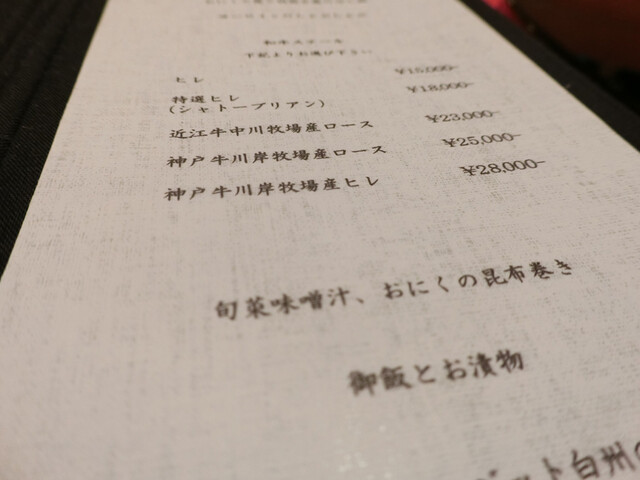 和牛ステーキ
下記よりお選び下さい
ヒレ ¥15,000-
特選ヒレ ¥18,000-
(シャトーブリアン)
近江牛中川牧場産ロース ¥23,000-
神戸牛川岸牧場産ロース ¥25,000-
神戸牛川岸牧場産ヒレ ¥28,000-
旬菜味噌汁、おにくの昆布巻き
御飯とお漬物
ット白州の